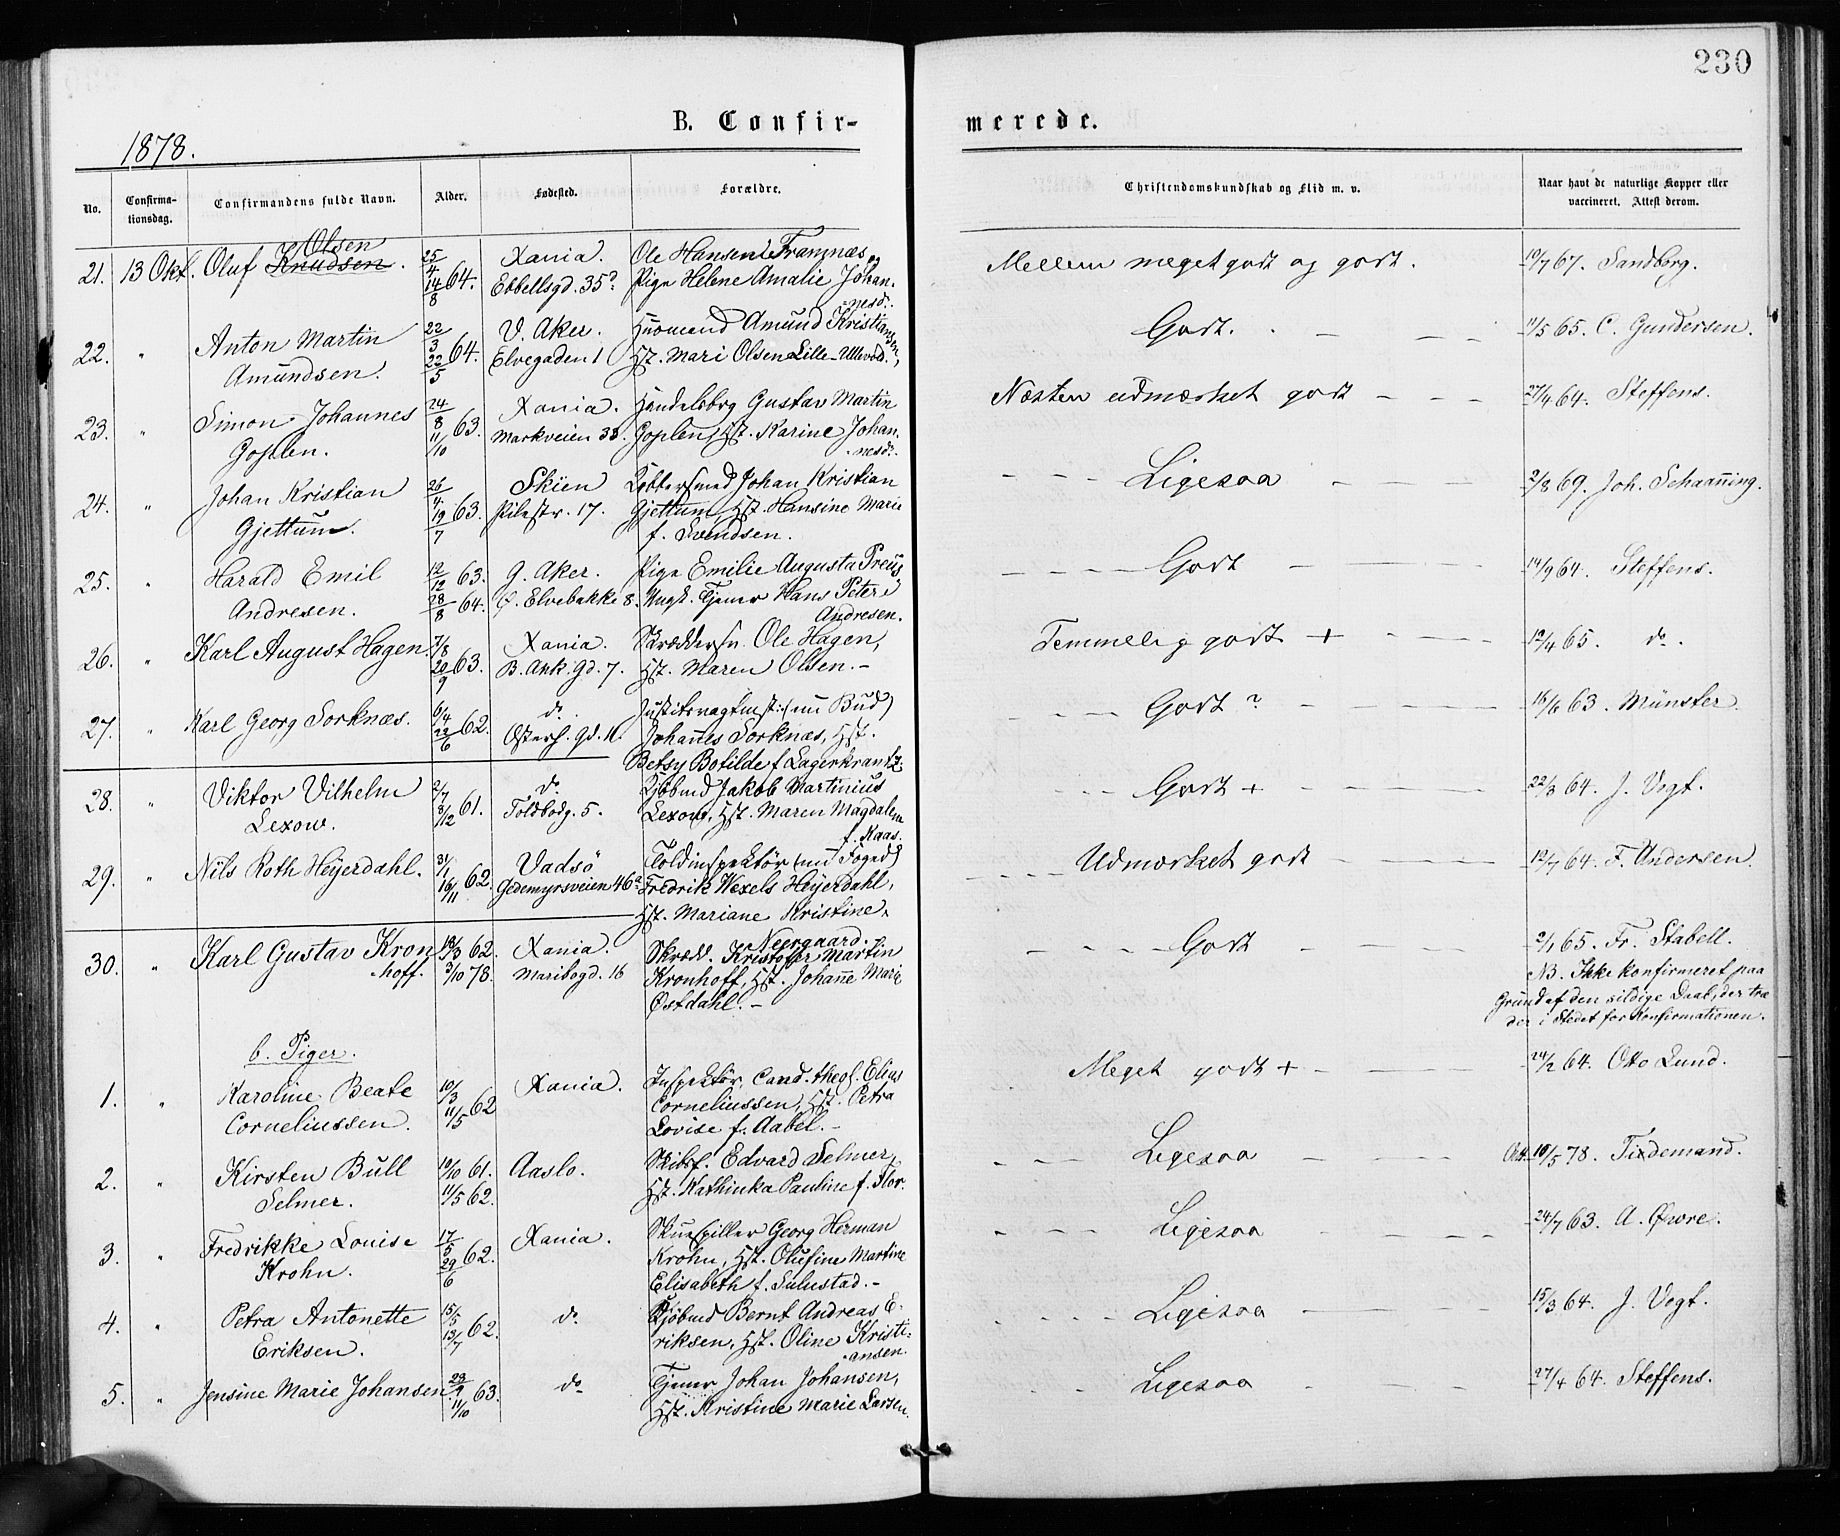 230
B. Confir- merede.
1878.
No. Confirma-tionsdag. Confirmandens fulde Navn. Alder. Fødested. Forældre. Christendomskundskab og Flid m. v. Naar havt de naturlige Kopper eller vaccineret. Attest derom.
21. 13 Okt. Oluf Knudsen Olsen. 25/4 14/8 64. Xania. Ole Hansen Framnæs og Mellem meget godt og godt. 10/7 67. Sandberg.
Ebbellsgd. 35? Pige Helene Amalie Johan-
nesd.
22. " Anton Martin 22/3 22/5 64. V. Aker. Husmand Amund Kristiansen, Godt. 11/5 65. C. Gundersen.
Amundsen. Elvegaden 1 Hst. Mari Olsen Lille-Ullevold.
23. " Simon Johannes 24/8 11/10 63. Xania. Handelsbrg Gustav Martin Næsten udmærket godt 27/4 64. Steffens.
Goplen. Markveien 33. Goplen, Hst. Karine Johan-
nesd.
24. " Johan Kristian 26/4 19/7 63. Skien Kobbersmed Johan Kristian Ligesaa 2/8 69. Joh. Schanning.
Gjettum. Pilestr. 17. Gjettum, Hst. Hansine Marie
f. Svendsen.
25. " Harald Emil 12/12 63. G. Aker. Pige Emilie Augusta Preus Godt 14/9 64. Steffens.
Andresen. 28/8 64. Ø. Elvebakke 8. Ungk. Tjener Hans Peter
Andresen.
26. " Karl August Hagen. 7/8 20/9 63. Xania. Skræddersv. Ole Hagen, Temmelig godt + 12/4 65. do.
B. Ank. Gd. 7. Hst. Maren Olsen.
27. " Karl Georg Sorknæs. 6/4 22/6 62. do Justitsvagtmst. (nu Bud) Godt? 16/6 63. Münster.
Østerh. Gd. 11. Johannes Sorknæs, Hst.
Betsy Botilde f. Lagerkrantz.
28. " Viktor Vilhelm 2/7 3/12 61. do Kjøbmd Jakob Martinius Godt + 22/3 64. J. Vogt.
Lexow. Toldbodg. 5. Lexow, Hst. Maren Magdalene
f. Kaas.
29. " Nils Roth Heyerdahl. 31/1 16/11 62. Vadsö Toldinspektör (nu Foged) Udmærket godt 12/7 64. F. Andersen.
Gedemyrsveien 46a Fredrik Wexels Heyerdahl,
Hst. Mariane Kristine
Neergaard.
30. " Karl Gustav Kron- 18/3 62. Xania. Skrædd. Kristofer Martin Godt 2/1 65. Fr. Stabell.
hoff. 3/10 78. Maribogd. 16 Kronhoff, Hst. Johanne Marie NB. Ikke konfirmeret paa
Østdahl. Grund af den sildige Daab, der træ
der i Stedet for Konfirmationen.
b. Piger.
1. " Karoline Beate 10/3 11/5 62 Xania. Inspektör, Cand. theol. Elias Meget godt + 24/2 64. Otto Lund.
Corneliussen. Corneliussen, Hst. Petra
Lovise f. Aabel.
2. " Kirsten Bull 10/10 61. Aaslo. Skibsf. Edvard Selmer, Ligesaa Att. 10/5 78. Tidemand.
Selmer. 11/5 62. Hst. Kathinka Pauline f. Flor.
3. " Fredrikke Louise 17/5 29/6 62. Xania. Skuespiller Georg Herman Ligesaa 24/7 63. A. Øwre.
Krohn. Krohn, Hst. Olufine Martine
Elisabeth f. Sulustad.
4. " Petra Antonette 15/5 13/7 62. do Kjøbmd Bernt Andreas E- Ligesaa 15/3 64. J. Vogt.
Eriksen. riksen, Hst. Oline Kristi-
ansen.
5. " Jensine Marie Johansen. 29/9 11/10 63. do Tjener Johan Johansen, Ligesaa 27/4 64. Steffens.
Hst. Kristine Marie Larsen.